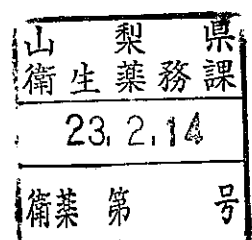 山梨県
衛生薬務課
23.2.14
衛薬第　　号